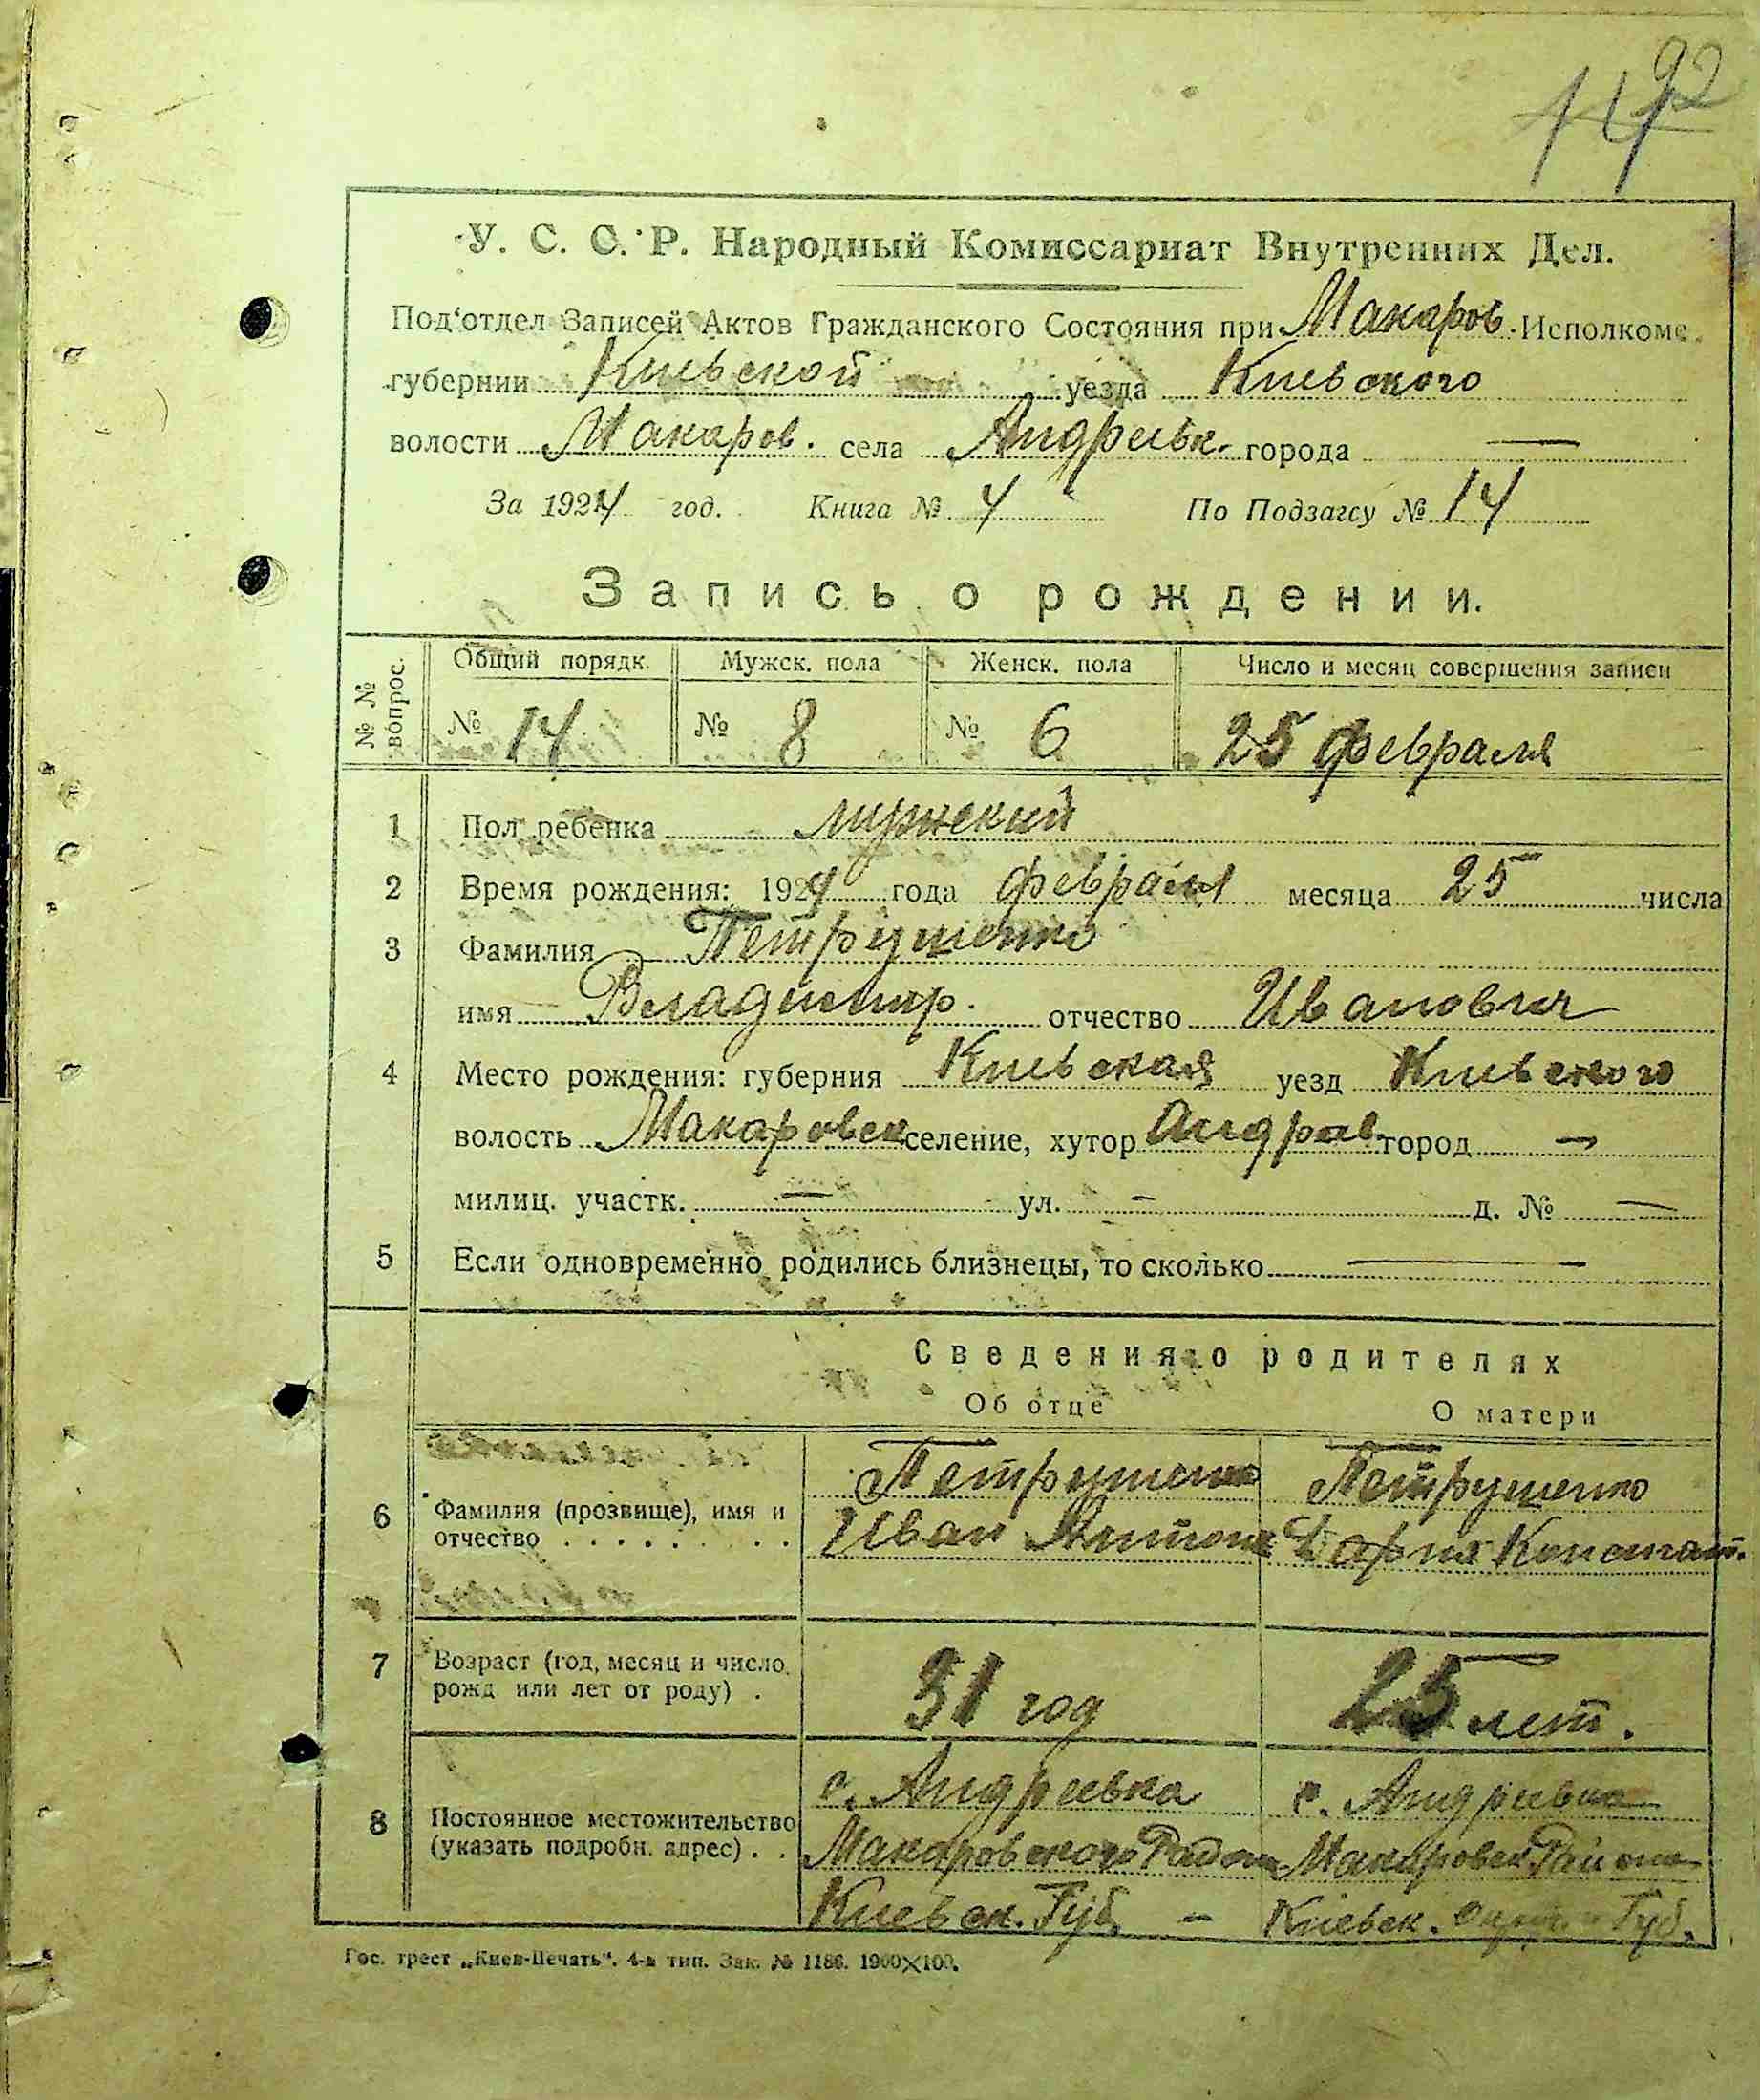 92
У. С. С. Р. Народный Комиссариат Внутренних Дел.
Под'отдел Записей Актов Гражданского Состояния при Макаров. Исполкоме
губернии Киевской уезда Киевского
волости Макаров. села Андреевк. города —
За 1924 год. Книга № 4 По Подзагсу № 14
Запись о рождении.
№ № вопрос. Общий порядк. Мужск. пола Женск. пола Число и месяц совершения записи
№ 14 № 8 № 6 25 февраля
1 Пол ребенка мужский
2 Время рождения: 1924 года февраля месяца 25 числа
3 Фамилия Петрущенко
имя Владимир. отчество Иванович
4 Место рождения: губерния Киевская уезд Киевского
волость Макаровск селение, хутор Андреев. город —
милиц. участк. — ул. — д. № —
5 Если одновременно родились близнецы, то сколько —
Сведения о родителях
Об отце О матери
6 Фамилия (прозвище), имя и Петрущенко Петрущенко
отчество . . . . . . . . Иван Антонов Дария Констант.
7 Возраст (год, месяц и число
рожд или лет от роду) . 31 год 25 лет.
с. Андреевка с. Андреевка
8 Постоянное местожительство
(указать подробн. адрес) . . Макаровского Района Макаровск Района
Киевск. Губ. — Киевск. Губ.
Гос. трест „Киев-Печать". 4-я тип. Зак. № 1186. 1900×100.